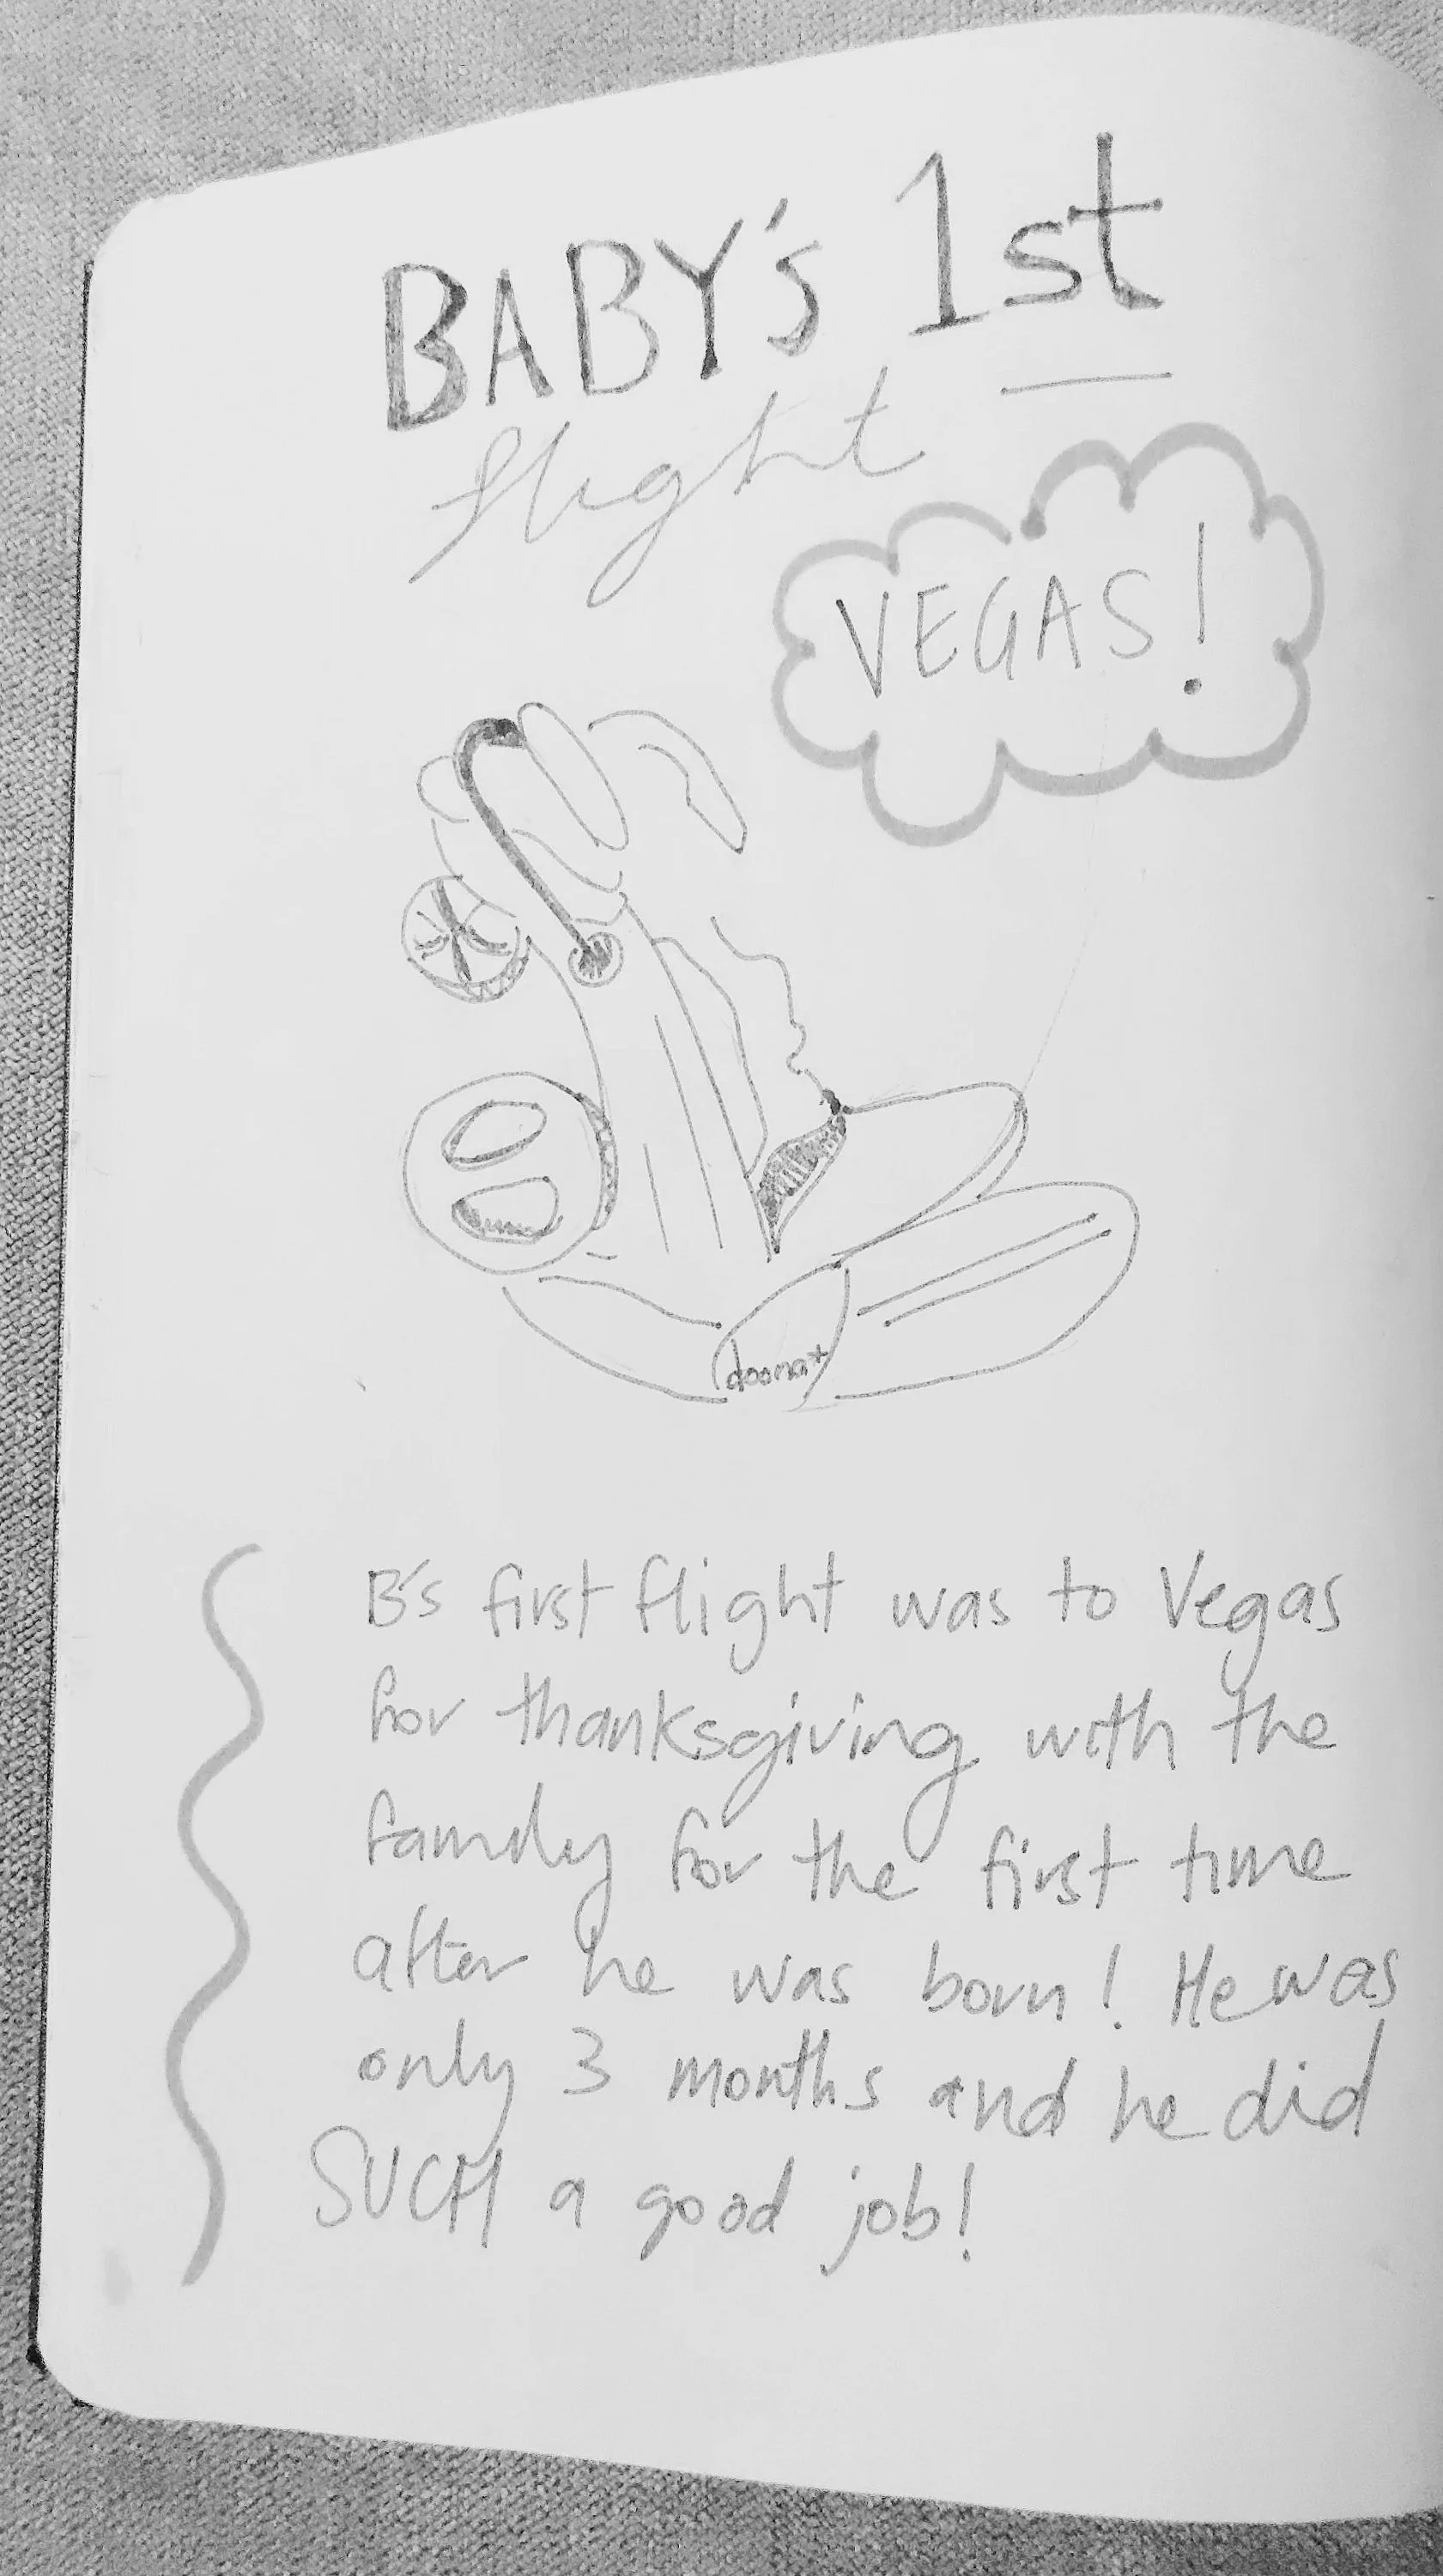 BABY's 1st
flight
VEGAS!
doona+
B's first flight was to Vegas
for thanksgiving with the
family for the first time
after he was born! He was
only 3 months and he did
SUCH a good job!